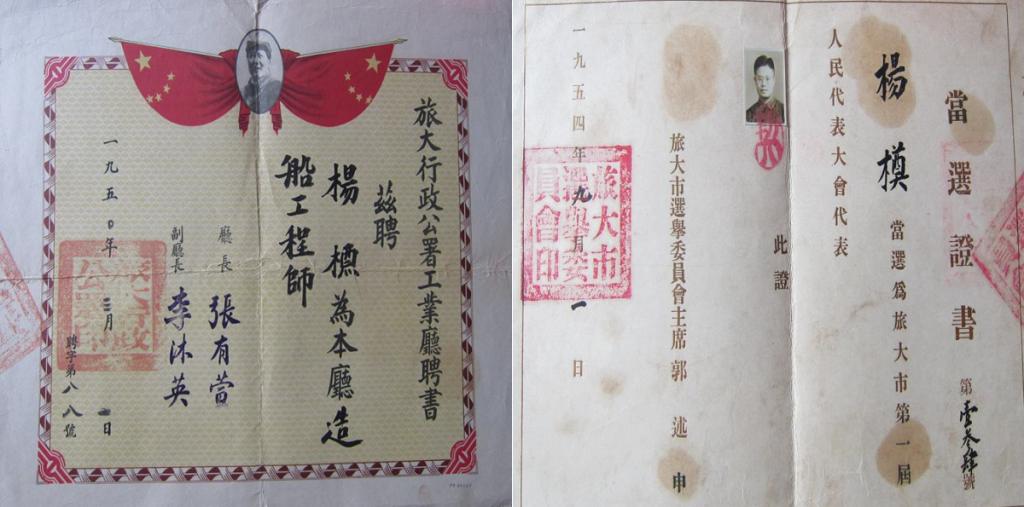 旅大行政公署工業廳聘書
茲聘
楊槱為本廳造
船工程師
廳長 張有萱
副廳長 李沐英
一九五0年三月 日
聘字第八八號
當選證書
第壹叁肆號
楊槱當選爲旅大市第一屆
人民代表大會代表
此證
旅大市選舉委員會主席郭述申
一九五四年九月一日
旅大市
選舉委
員會印